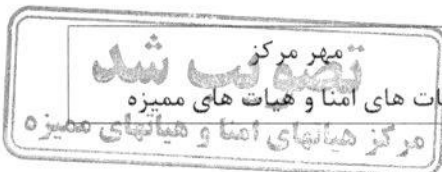 مهر مرکز
تصویب شد
های امنا و هیات های ممیزه
مرکز هیاتهای امنا و هیاتهای ممیزه